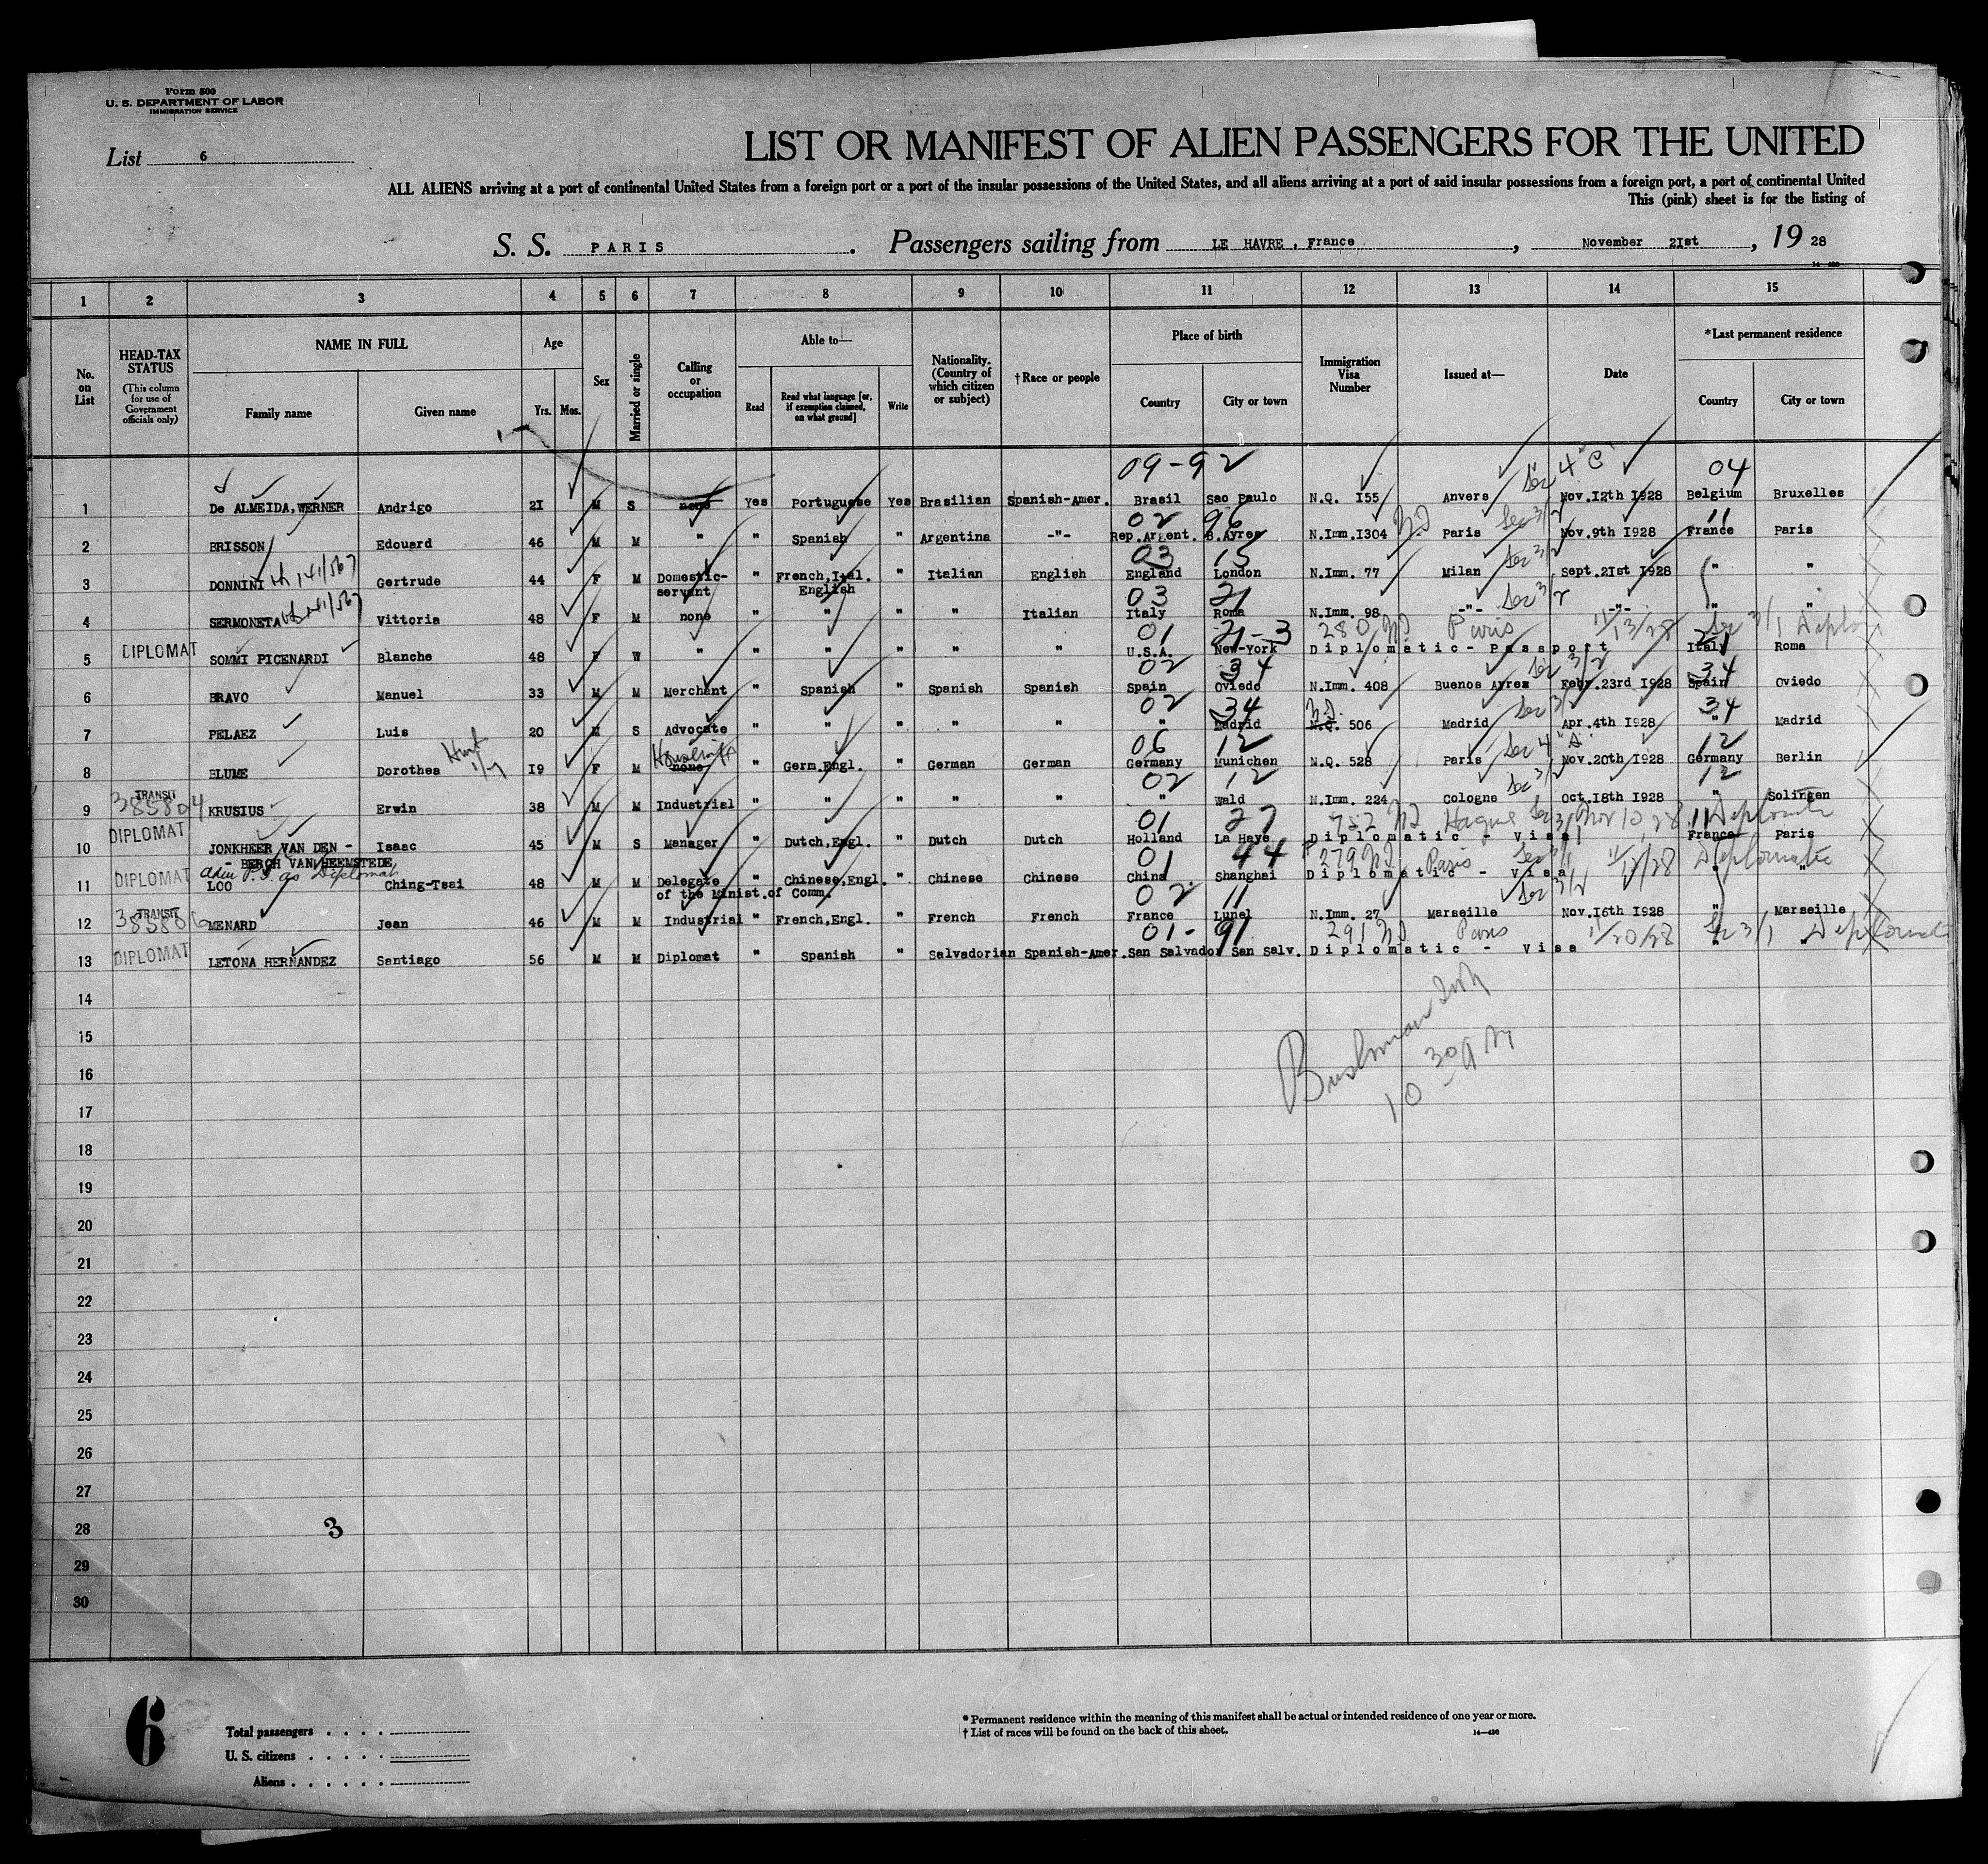 Form 500
U. S. DEPARTMENT OF LABOR
IMMIGRATION SERVICE
List 6
LIST OR MANIFEST OF ALIEN PASSENGERS FOR THE UNITED
ALL ALIENS arriving at a port of continental United States from a foreign port or a port of the insular possessions of the United States, and all aliens arriving at a port of said insular possessions from a foreign port, a port of continental United
This (pink) sheet is for the listing of
S. S. PARIS. Passengers sailing from LE HAVRE, France, November 2Ist, 19 28
14—430
1 2 3 4 5 6 7 8 9 10 11 12 13 14 15
No. on List
HEAD-TAX STATUS (This column for use of Government officials only)
NAME IN FULL
Family name Given name
Age
Yrs. Mos.
Sex
Married or single
Calling or occupation
Able to—
Read
Read what language [or, if exemption claimed, on what ground]
Write
Nationality. (Country of which citizen or subject)
†Race or people
Place of birth
Country City or town
Immigration Visa Number
Issued at—
Date
*Last permanent residence
Country City or town
09-92 Sec 4 "C" 04
1 De ALMEIDA, WERNER Andrigo 2I M S none Yes Portuguese Yes Brasilian Spanish-Amer. Brasil Sao Paulo N.Q. I55 Anvers Nov.I2th I928 Belgium Bruxelles
02 96 Sec 3/2 11
2 BRISSON Edouard 46 M M " " Spanish " Argentina -"- Rep.Argent. B.Ayres N.Imm.I304 Paris Nov.9th I928 France Paris
03 15 Sec 3/2
3 DONNINI 141/567 Gertrude 44 F M Domestic-servant " French,Ital. English " Italian English England London N.Imm. 77 Milan Sept.2Ist I928 " "
03 21 Sec 3/2
4 SERMONETA 141/567 Vittoria 48 F M none " " " " Italian Italy Roma N.Imm. 98 -"- -"- " "
01 21-3 280 Paris 11/13/28 Sec 3/1 Diplo
5 DIPLOMAT SOMMI PICENARDI Blanche 48 F W " " " " " " U.S.A. New-York Diplomatic - Passport Italy Roma
02 34 Sec 3/2 34
6 BRAVO Manuel 33 M M Merchant " Spanish " Spanish Spanish Spain Oviedo N.Imm. 408 Buenos Ayres Febr.23rd I928 Spain Oviedo
02 34 Sec 3/2 34
7 PELAEZ Luis 20 M S Advocate " " " " " " Madrid N.Q. 506 Madrid Apr.4th I928 " Madrid
06 12 Sec 4 "A" 12
8 BLUME Dorothea I9 F M Housewife none " Germ.Engl. " German German Germany Munichen N.Q. 528 Paris Nov.20th I928 Germany Berlin
02 12 Sec 3/2 12
9 TRANSIT 385804 KRUSIUS Erwin 38 M M Industrial " " " " " " Wald N.Imm. 224 Cologne Oct.I8th I928 " Solingen
01 27 752 Hague Sec 3/1 Nov 10, 28 11 Diplomatic
10 DIPLOMAT JONKHEER VAN DEN - Isaac 45 M S Manager " Dutch,Engl. " Dutch Dutch Holland La Haye Diplomatic - Visa France Paris
- BERCH VAN HEEMSTEDE
01 44 279 Paris Sec 3/1 Diplomatic
11 DIPLOMAT LOO Ching-Tsai 48 M M Delegate of the Minist.of Comm. " Chinese,Engl. " Chinese Chinese China Shanghai Diplomatic - Visa " "
02 11 Sec 3/2
12 TRANSIT 385806 MENARD Jean 46 M M Industrial " French,Engl. " French French France Lunel N.Imm. 27 Marseille Nov.I6th I928 " Marseille
01-91 291 Paris 11/20/28 Sec 3/1 Diplomatic
13 DIPLOMAT LETONA HERNANDEZ Santiago 56 M M Diplomat " Spanish " Salvadorian Spanish-Amer. San Salvador San Salv. Diplomatic - Visa " "
14
15
Bushman
10 30 AM
16
17
18
19
20
21
22
23
24
25
26
27
28
3
29
30
6
Total passengers . . . .
U. S. citizens . . . . .
Aliens . . . . . .
* Permanent residence within the meaning of this manifest shall be actual or intended residence of one year or more.
† List of races will be found on the back of this sheet.
14—430